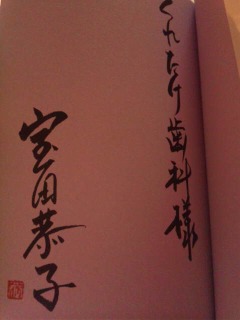 くれたけ歯科様
宝田恭子